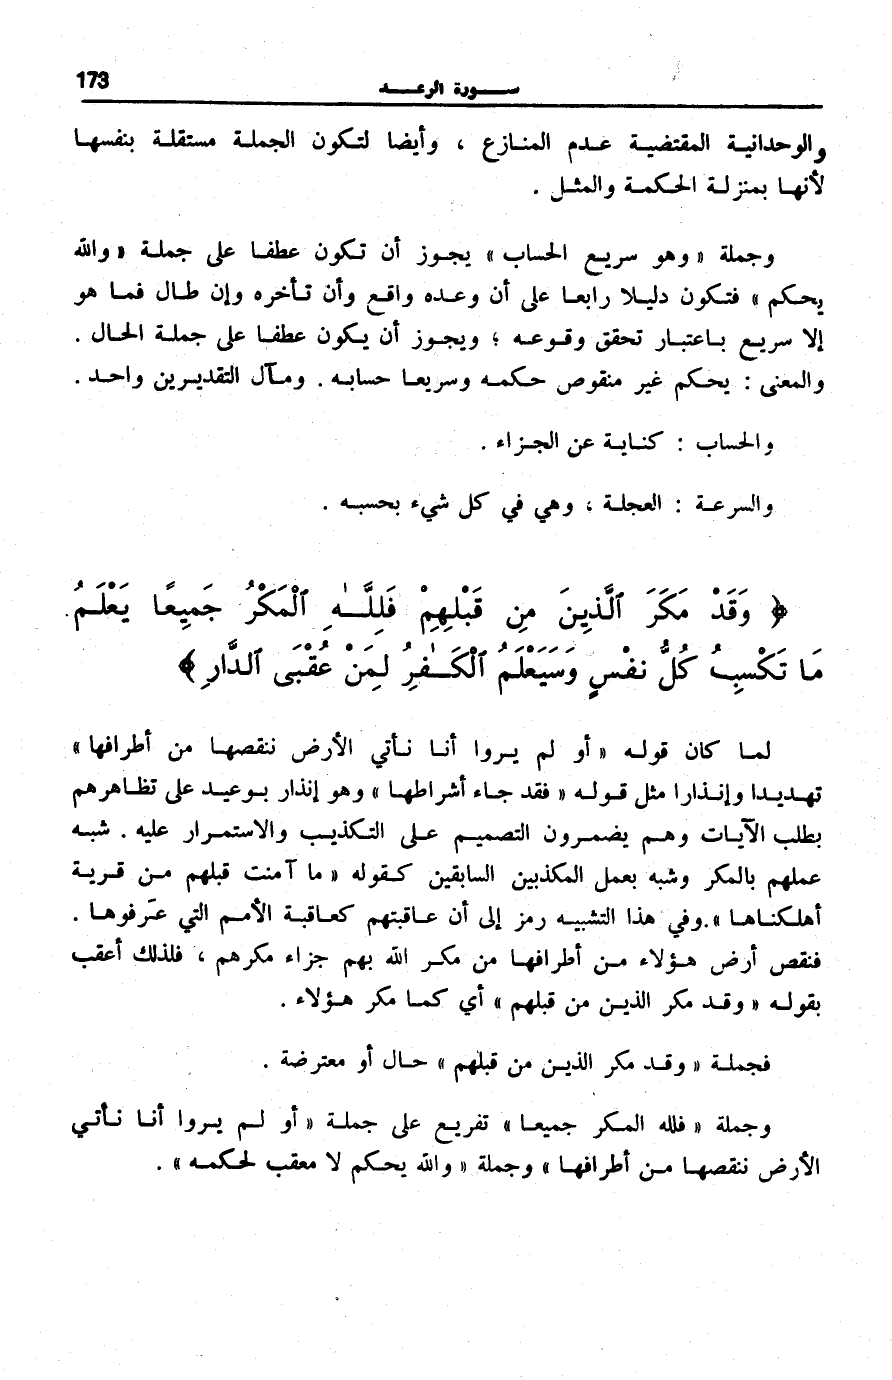 173
سورة الرعد
والوحدانية المقتضية عدم المنازع ، وأيضا لتكون الجملة مستقلة بنفسها
لأنها بمنزلة الحكمة والمثل .
وجملة « وهو سريع الحساب » يجوز أن تكون عطفا على جملة « والله
يحكم » فتكون دليلا رابعا على أن وعده واقع وأن تأخره وإن طال فما هو
إلا سريع باعتبار تحقق وقوعه ؛ ويجوز أن يكون عطفا على جملة الحال .
والمعنى : يحكم غير منقوص حكمه وسريعا حسابه . ومآل التقديرين واحد .
والحساب : كناية عن الجزاء .
والسرعة : العجلة ، وهي في كل شيء بحسبه .
﴿ وَقَدْ مَكَرَ ٱلَّذِينَ مِن قَبْلِهِمْ فَلِلَّـٰهِ ٱلْمَكْرُ جَمِيعًا يَعْلَمُ
مَا تَكْسِبُ كُلُّ نَفْسٍ وَسَيَعْلَمُ ٱلْكَـٰفِرُ لِمَنْ عُقْبَى ٱلدَّارِ ﴾
لما كان قوله « أو لم يروا أنا نأتي الأرض ننقصها من أطرافها »
تهديدا وإنذارا مثل قوله « فقد جاء أشراطها » وهو إنذار بوعيد على تظاهرهم
بطلب الآيات وهم يضمرون التصميم على التكذيب والاستمرار عليه . شبه
عملهم بالمكر وشبه بعمل المكذبين السابقين كقوله « ما آمنت قبلهم من قرية
أهلكناها ». وفي هذا التشبيه رمز إلى أن عاقبتهم كعاقبة الأمم التي عرفوها .
فنقص أرض هؤلاء من أطرافها من مكر الله بهم جزاء مكرهم ، فلذلك أعقب
بقوله « وقد مكر الذين من قبلهم » أي كما مكر هؤلاء .
فجملة « وقد مكر الذين من قبلهم » حال أو معترضة .
وجملة « فلله المكر جميعا » تفريع على جملة « أو لم يروا أنا نأتي
الأرض ننقصها من أطرافها » وجملة « والله يحكم لا معقب لحكمه » .